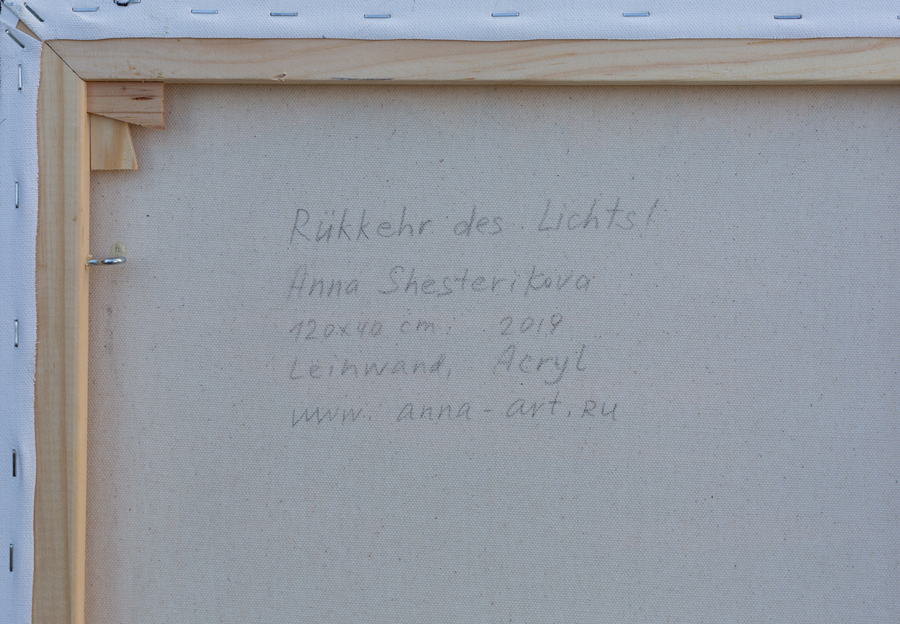 Rükkehr des Lichts!
Anna Shesterikova
120x40 cm. 2019
Leihwand, Acryl
www. anna-art.RU